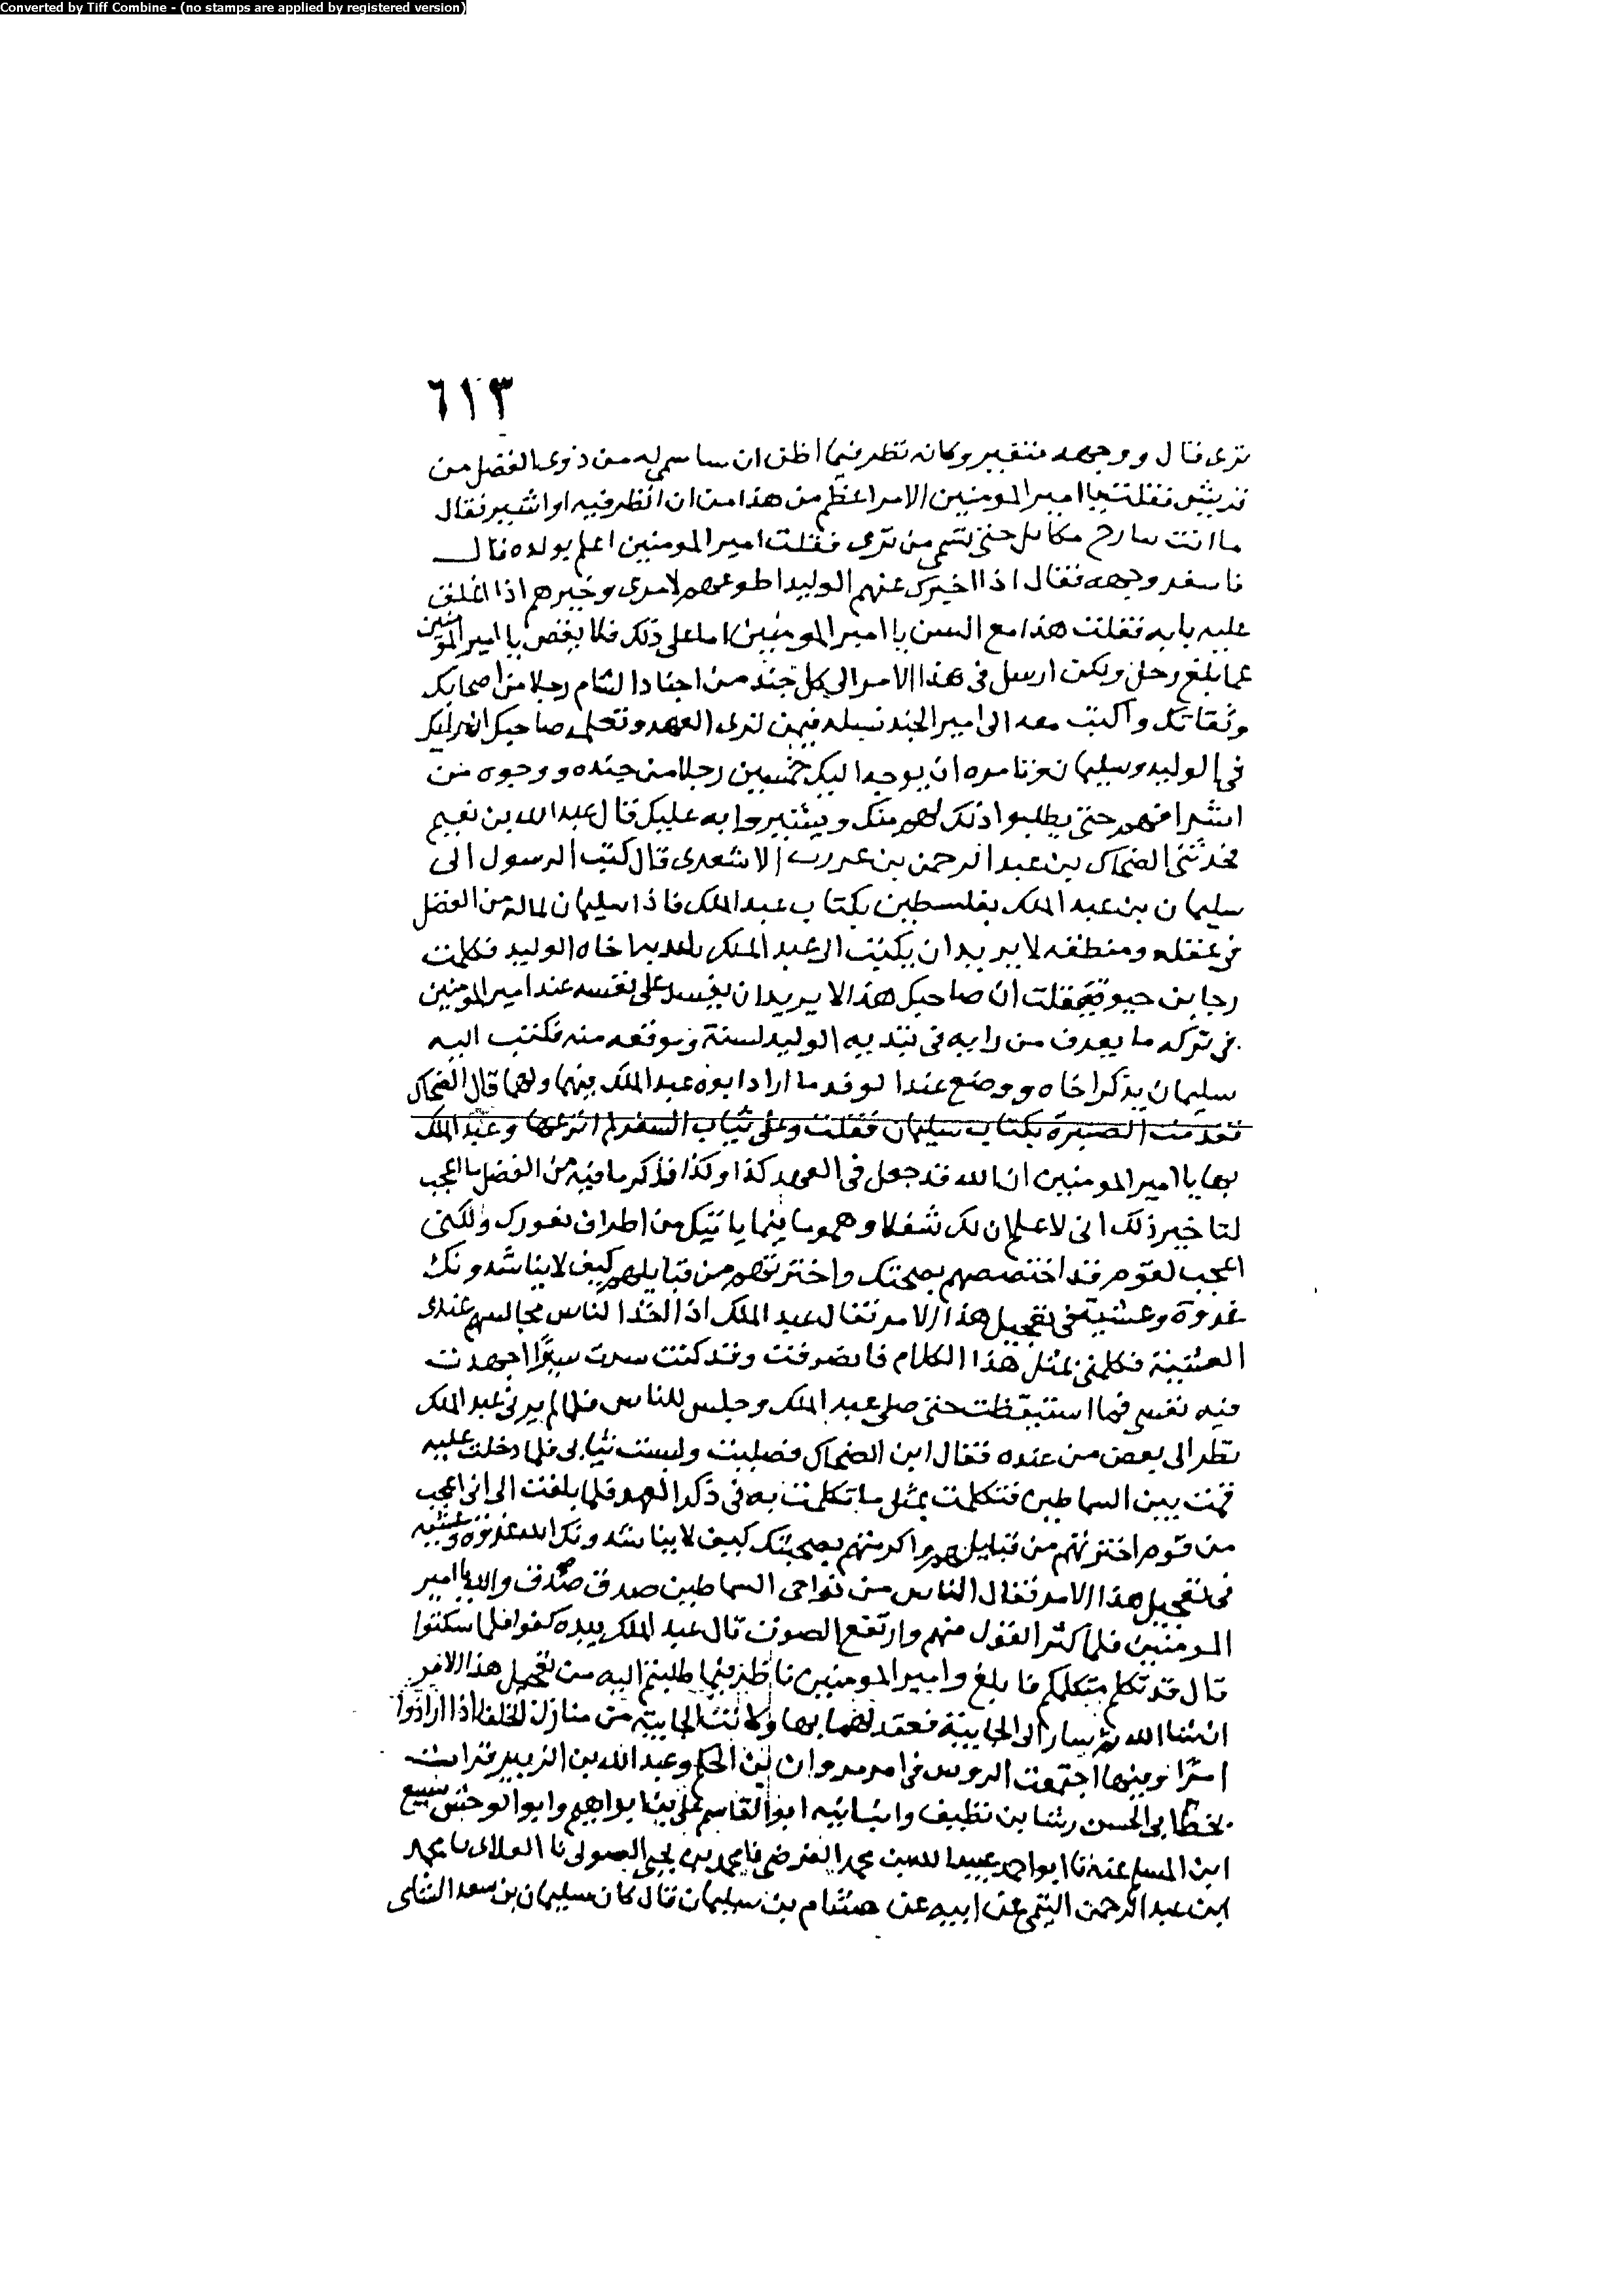 Converted by Tiff Combine - (no stamps are applied by registered version)
٦١٣
ترى فقال ووجهه متغير وكانه نظر فيما اظن ان ساسمي له من ذوى الفضل من
قريش فقلت يا امير المومنين الامر اعظم من هذا من ان انظر فيه او اشير فقال
ما انت ببارح مكانك حتى تسمى من ترى فقلت امير المومنين اعلم بولده قال
فاسفر وجهه فقال اذا اخبرك عنهم الوليد اطوعهم لامرى وخيرهم اذا اغلق
عليه بابه فقلت هذا مع السن يا امير المومنين اما على ذلك فلا يغض يا امير المومنين
عما بلغ رحلى ولكن ارسل فى هذا الامر الى كل جند من اجناد الشام رجلا من اصحابك
وثقاتك واكتب معه الى امير الجند تسله فيمن ترى العهد وتعلم صاحبك انه ليك
فى الوليد وسليمان تامره ان يوجد اليك خمسين رجلا من جنده ووجوه من
اشرافهم حتى يطلبوا ذلك لهم منك ويشيروا به عليك قال عبد الله بن نعيم
فحدثنى الضحاك بن عبد الرحمن بن عرزب الاشعرى قال كنت الرسول الى
سليمان بن عبد الملك بفلسطين بكتاب عبد الملك فاذا سليمان لماله من الفضل
فى عقله ومنطقه لا يريد ان يكتب الى عبد الملك اخاه الوليد فكلمت
رجا بن حيوة فقلت ان صاحبك هذا لا يريد ان يفسد على نفسه عند امير المومنين
فى تركه ما يعرف من رايه فى الوليد لسنه وموقعه منه فكتب اليه
سليمان يذكر اخاه ووضع عند الوفد ما اراد ابوه عبد الملك بينهما ولهما قال الضحاك
فقدمت الصنبرة بكتاب سليمان فقلت وعلى ثياب السفر لم انزعها وعبد الملك
بها يا امير المومنين ان الله قد جعل فى العهد كذا وكذا فذكر ما فيه من الفضل ما اعجب
لتاخير ذلك انى لاعلم ان لك شغلا وهموما فيما ياتيك من اطراف ثغورك ولكنى
اعجب لقوم قد اختصصهم بصحبتك واخترتهم من قبايلهم كيف لا يناشدونك
غدوة وعشية فى تعجيل هذا الامر فقال عبد الملك اذا اخذ الناس مجالسهم عندى
العشية فكلمنى بمثل هذا الكلام فانصرفت وقد كنت سرت سيرا اجهدت
فيه نفسى فما استيقظت حتى صلى عبد الملك وجلس للناس فلما لم يرنى عبد الملك
نظر الى بعض من عنده فقال اين الضحاك فصليت ولبست ثيابى فلما دخلت عليه
قمت بين السماطين فتكلمت بمثل ما تكلمت به فى ذكر العهد فلما بلغت الى انى اعجب
من قوم اخترتهم من قبايلهم واكرمتهم بصحبتك كيف لا يناشدونك الله غدوة وعشية
فى تعجيل هذا الامر فقال الناس من نواحى السماطين صدق صدق والله يا امير
المومنين فلما كثر القول منهم وارتفع الصوت قال عبد الملك بيده كفوا فلما سكتوا
قال قد تكلم متكلمكم فابلغ وامير المومنين ناظر فيما طلبتم اليه من تعجيل هذا الامر
ان شا الله ثم سار الى الجابية فعقد لهما بها وكانت الجابية من منازل الخلفا اذا ارادوا
امرا وبينها اجتمعت الروس فى امر مروان بن الحكم وعبد الله بن الزبير قرات
بخط ابى الحسن رشا بن نظيف وانبانيه ابو القاسم على بن ابراهيم وابو الوحش سبيع
ابن المسلم عنه نا ابو احمد عبيد الله بن محمد الفرضى نا محمد بن يحيى الصولى نا العلائ نا محمد
ابن عبد الرحمن التيمى عن ابيه عن هشام بن سليمان قال كان سليمان بن سعد